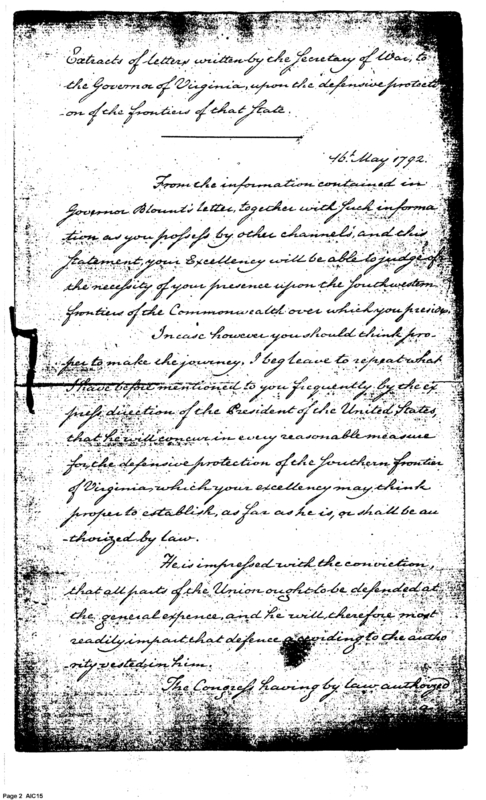 Extracts of letters written by the Secretary of War, to
the Governor of Virginia, upon the defensive protecti
-on of the frontiers of that State.
16th May 1792.
From the information contained in
Governor Blount's letter, together with such informa
tion as you possess by other channels, and this
Statement, your Excellency will be able to judge of
the necessity of your presence upon the Southwestern
frontiers of the Commonwealth over which you preside.
In case however you should think pro-
per to make the journey, I beg leave to repeat what
I have before mentioned to you frequently by the ex
press direction of the President of the United States,
that he will concur in every reasonable measure
for the defensive protection of the Southern frontier
of Virginia, which your excellency may think
proper to establish, as far as he is, or shall be au
-thorized by law.
He is impressed with the conviction,
that all parts of the Union ought to be defended at
the general expence, and he will, therefore most
readily impart that defence according to the autho
rity vested in him.
The Congress having by law authorized
a
Page 2 AIC15